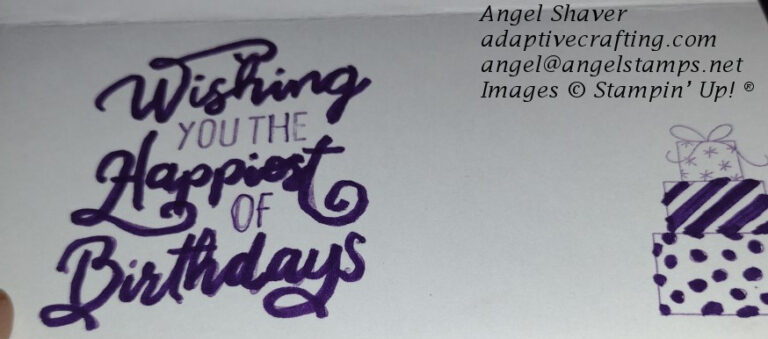 Angel Shaver
adaptivecrafting.com
angel@angelstamps.net
Images © Stampin' Up! ®
Wishing
YOU THE
Happiest
OF
Birthdays